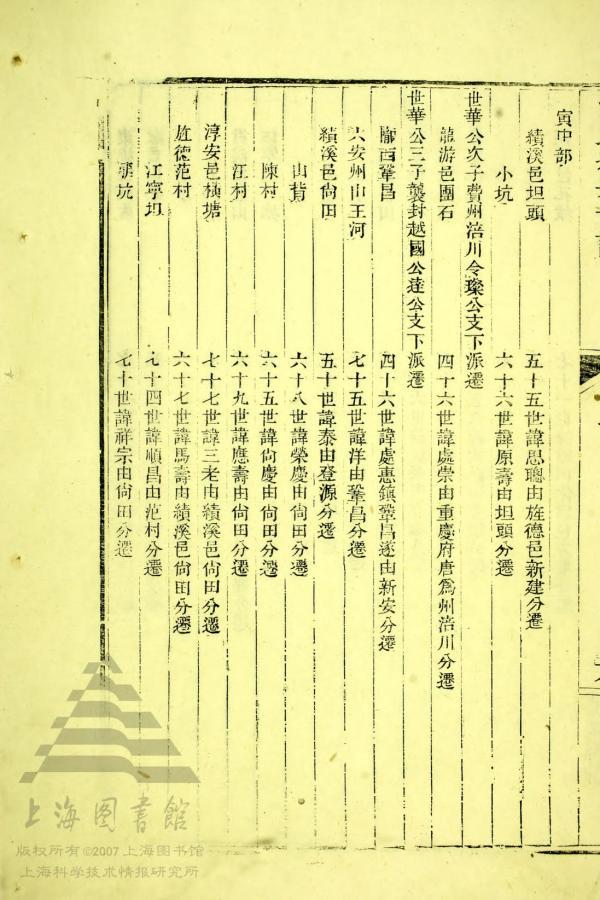 寅中部
績溪邑坦頭 五十五世諱思聰由旌德邑新建分遷
小坑 六十六世諱原壽由坦頭分遷
世華公次子費州涪川令璨公支下派遷
龍游邑團石 四十六世諱處崇由重慶府唐爲州涪川分遷
世華公三子襲封越國公達公支下派遷
隴西鞏昌 四十六世諱處惠鎮鞏昌遂由新安分遷
六安州山王河 七十五世諱洋由鞏昌分遷
績溪邑尙田 五十世諱泰由登源分遷
山背 六十八世諱榮慶由尙田分遷
陳村 六十五世諱尙慶由尙田分遷
江村 六十九世諱應壽由尙田分遷
淳安邑橫塘 七十七世諱三老由績溪邑尙田分遷
旌德范村 六十七世諱馬壽由績溪邑尙田分遷
江寧坦 七十四世諱順昌由范村分遷
坑 七十世諱祥宗由尙田分遷
上海图書館
版权所有©2007 上海图书馆
上海科学技术情报研究所